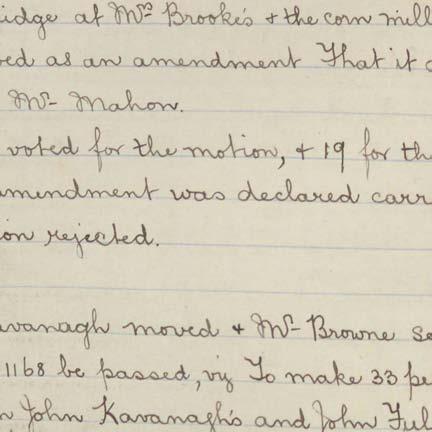 idge at Mrs Brooke's + the corn mill
ed as an amendment That it
Mr Mahon.
voted for the motion, + 19 for th
mendment was declared carr
on rejected.
avanagh moved + Mr Browne se
1168 be passed, viz To make 33 pe
n John Kavanagh's and John Ful